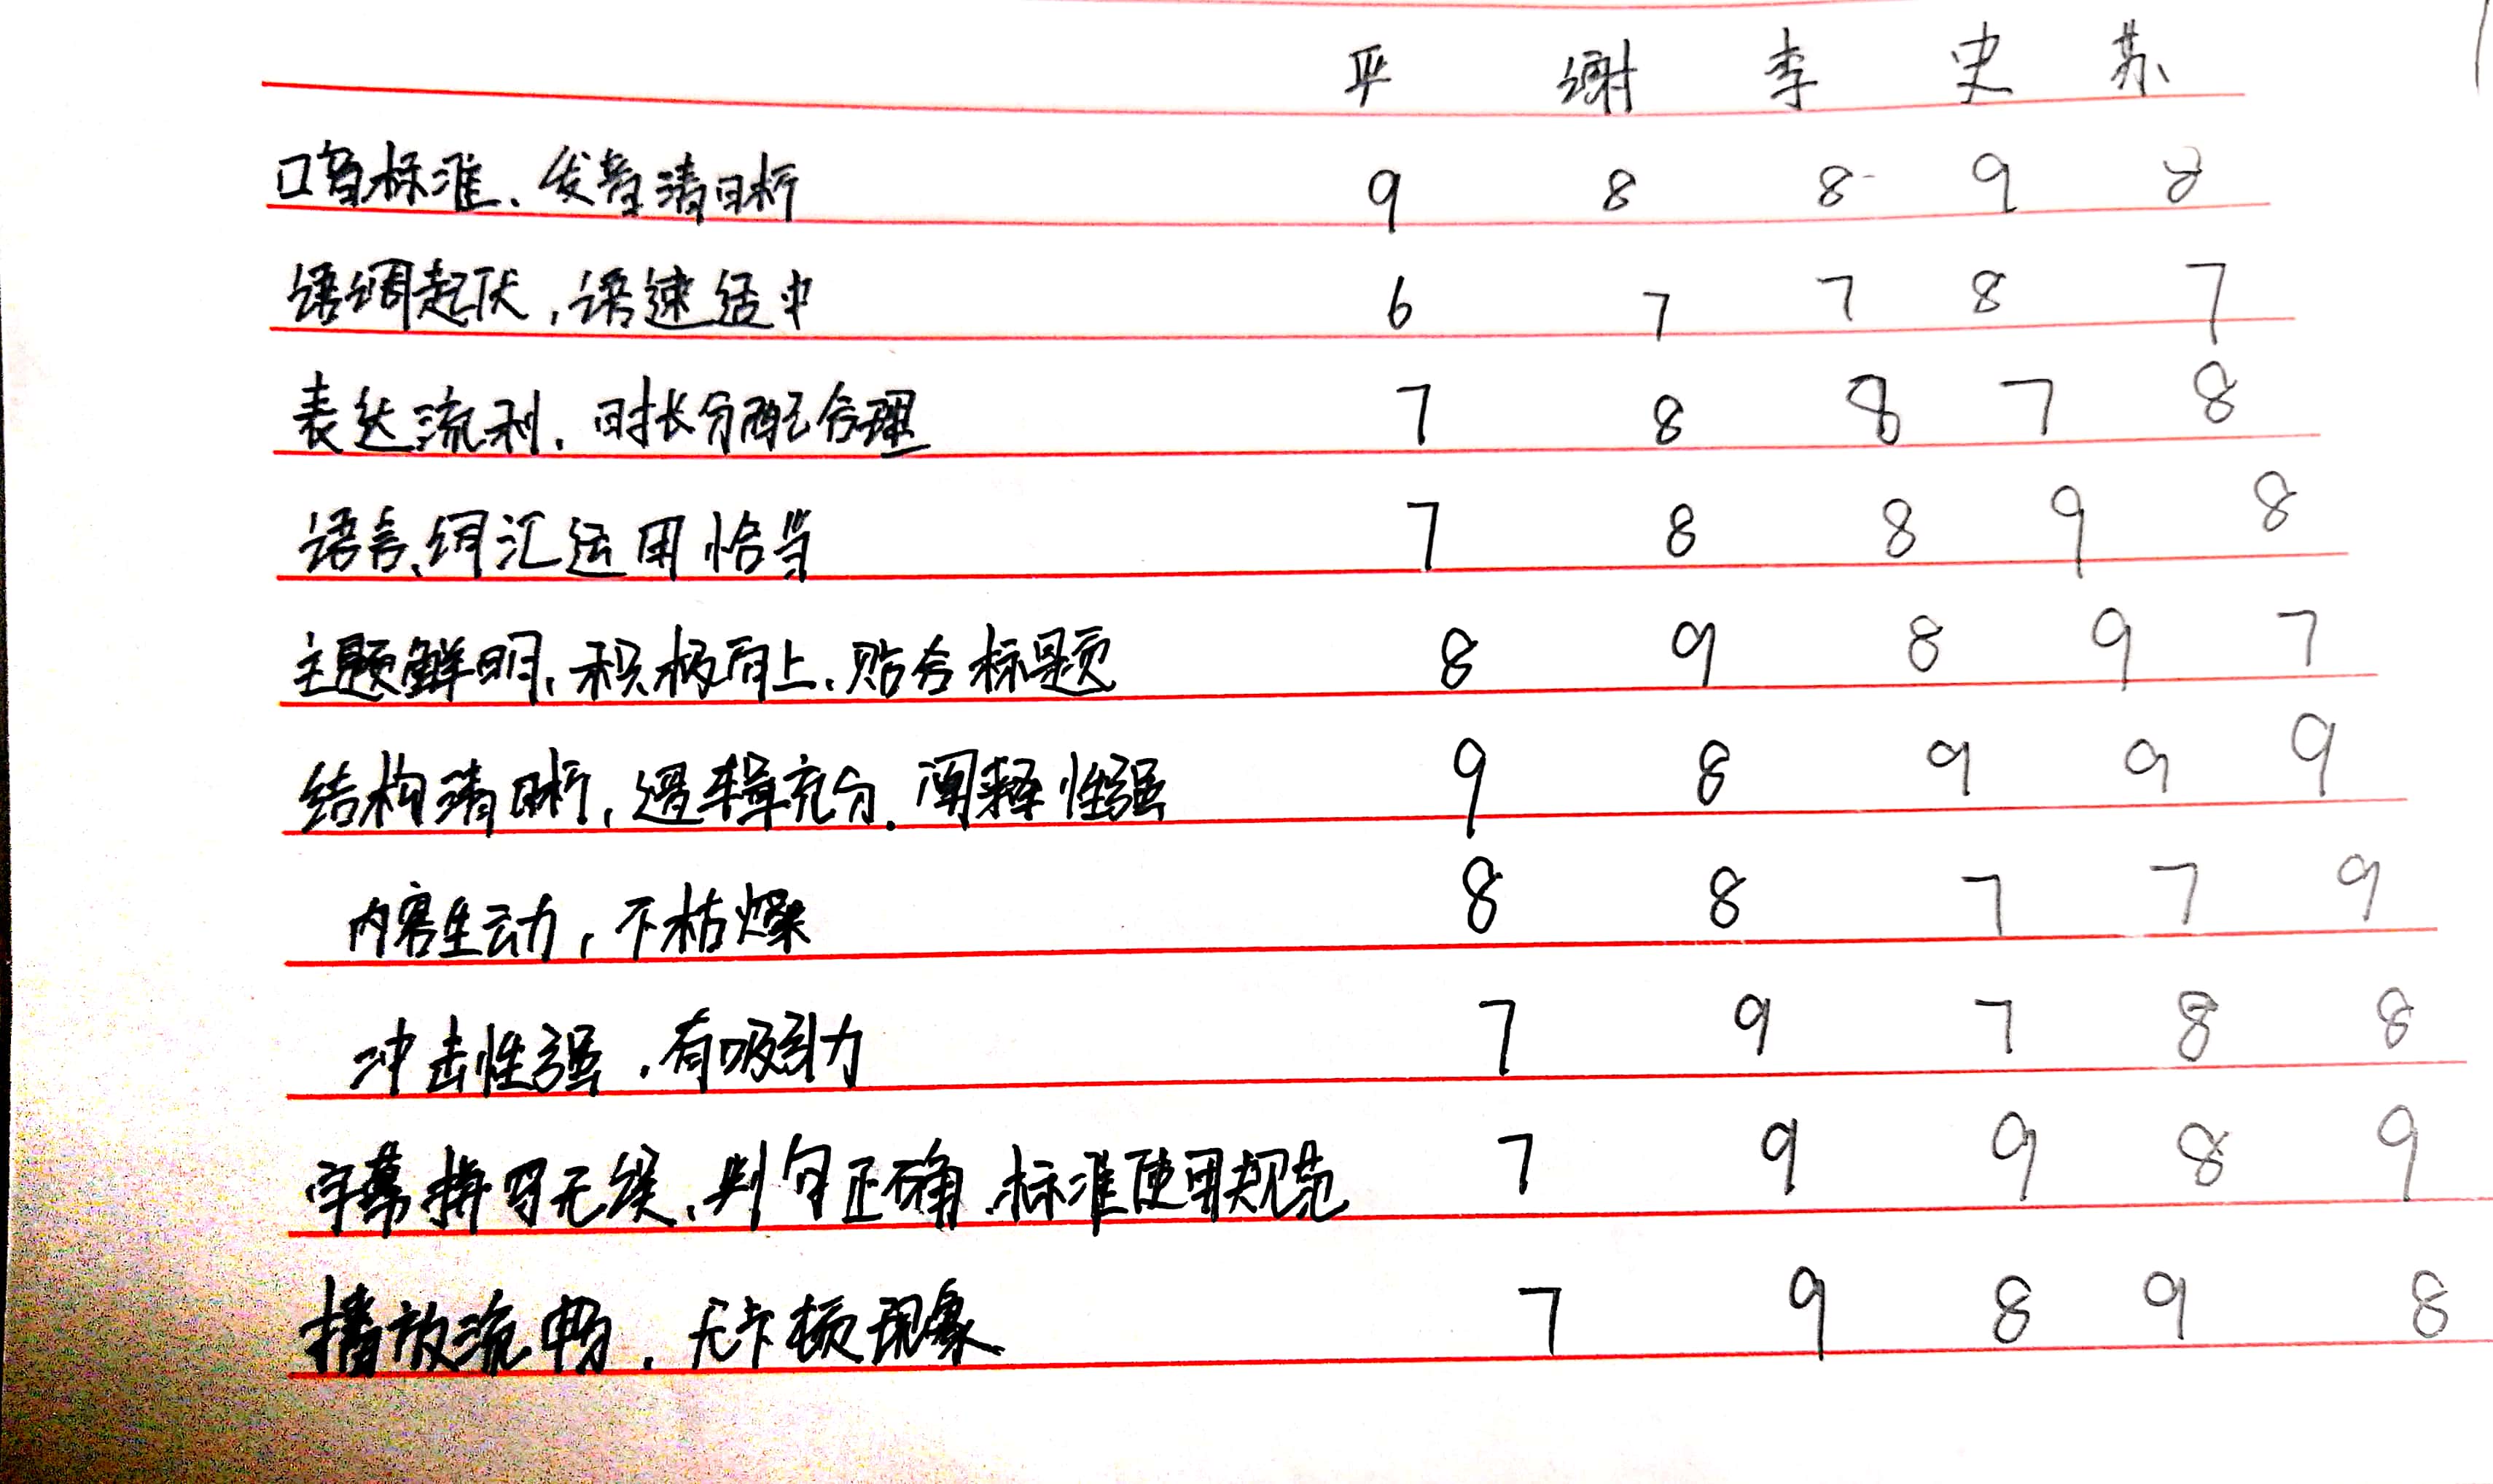 严 谢 李 史 苏
口音标准、发音清晰 9 8 8 9 8
语调起伏,语速适中 6 7 7 8 7
表达流利,时长分配合理 7 8 8 7 8
语言、词汇运用恰当 7 8 8 9 8
主题鲜明,积极向上,贴合标题 8 9 8 9 7
结构清晰,逻辑充分,阐释性强 9 8 9 9 9
内容生动,不枯燥 8 8 7 7 9
冲击性强,有吸引力 7 9 7 8 8
字幕拼写无误,判句正确,标准使用规范 7 9 9 8 9
播放流畅,无卡顿现象 7 9 8 9 8